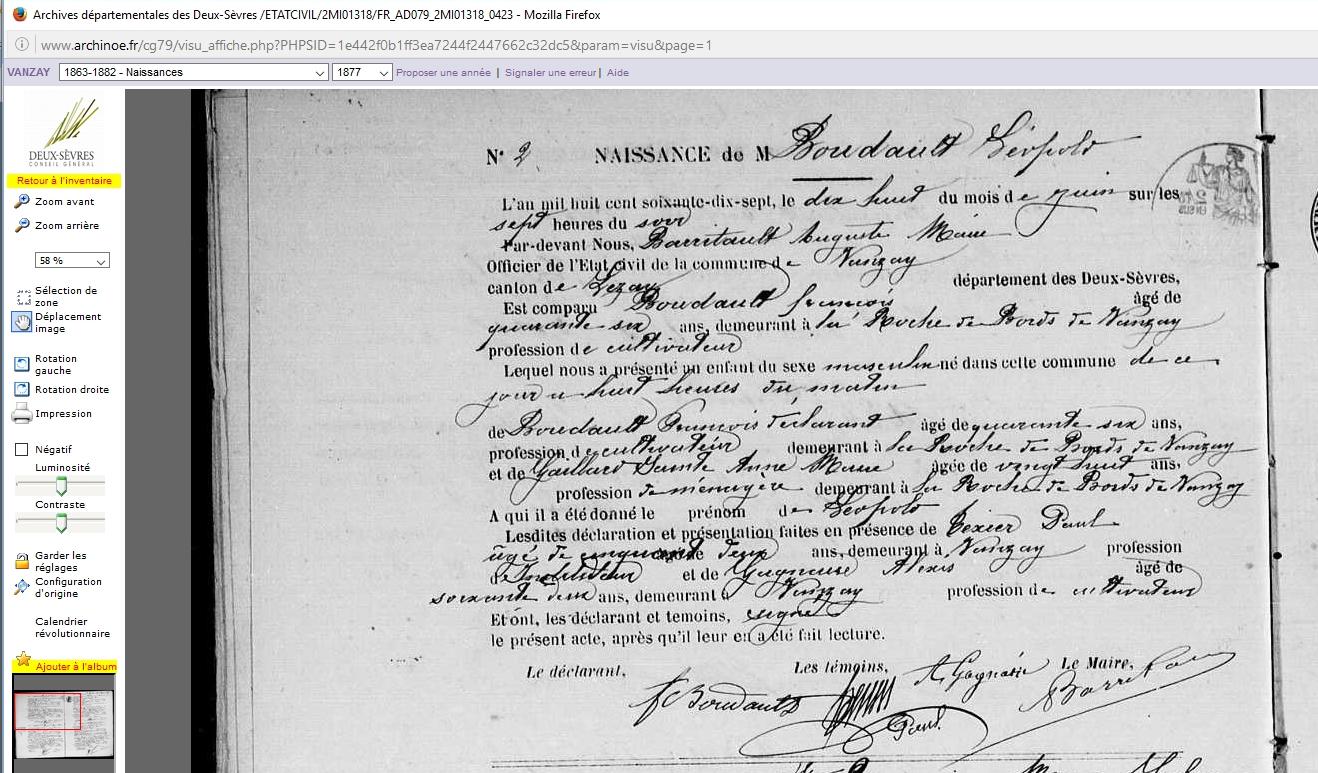 Archives départementales des Deux-Sèvres /ETATCIVIL/2MI01318/FR_AD079_2MI01318_0423 - Mozilla Firefox
www.archinoe.fr/cg79/visu_affiche.php?PHPSID=1e442f0b1ff3ea7244f2447662c32dc5&param=visu&page=1
VANZAY 1863-1882 - Naissances 1877 Proposer une année | Signaler une erreur | Aide
DEUX-SÈVRES
CONSEIL GÉNÉRAL
Retour à l'inventaire
Zoom avant
Zoom arrière
58 %
Sélection de
zone
Déplacement
image
Rotation
gauche
Rotation droite
Impression
Négatif
Luminosité
Contraste
Garder les
réglages
Configuration
d'origine
Calendrier
révolutionnaire
Ajouter à l'album
N° 2 NAISSANCE de M Boudault Léopold
L'an mil huit cent soixante-dix-sept, le dix huit du mois de juin sur les
sept heures du soir
Par-devant Nous, Barritault Auguste Maire
Officier de l'Etat civil de la commune de Vanzay
canton de Lezay département des Deux-Sèvres,
Est comparu Boudault françois âgé de
quarante six ans, demeurant à la Roche de Bords de Vanzay
profession de cultivateur
Lequel nous a présenté un enfant du sexe masculin né dans cette commune de ce
jour a huit heures du matin
de Boudault François déclarant âgé de quarante six ans,
profession de cultivateur demeurant à la Roche de Bords de Vanzay
et de Gaillard Sainte Anne Marie âgée de vingt huit ans,
profession de ménagère demeurant à la Roche de Bords de Vanzay
A qui il a été donné le prénom de Léopold
Lesdites déclaration et présentation faites en présence de Texier Paul
âgé de cinquante deux ans, demeurant à Vanzay profession
d'Instituteur et de Alexis âgé de
soixante deux ans, demeurant à Vanzay profession de cultivateur
Et ont, les déclarant et temoins, signé
le présent acte, après qu'il leur en a été fait lecture.
Le déclarant, Les témoins, Le Maire,
f Boudault Paul